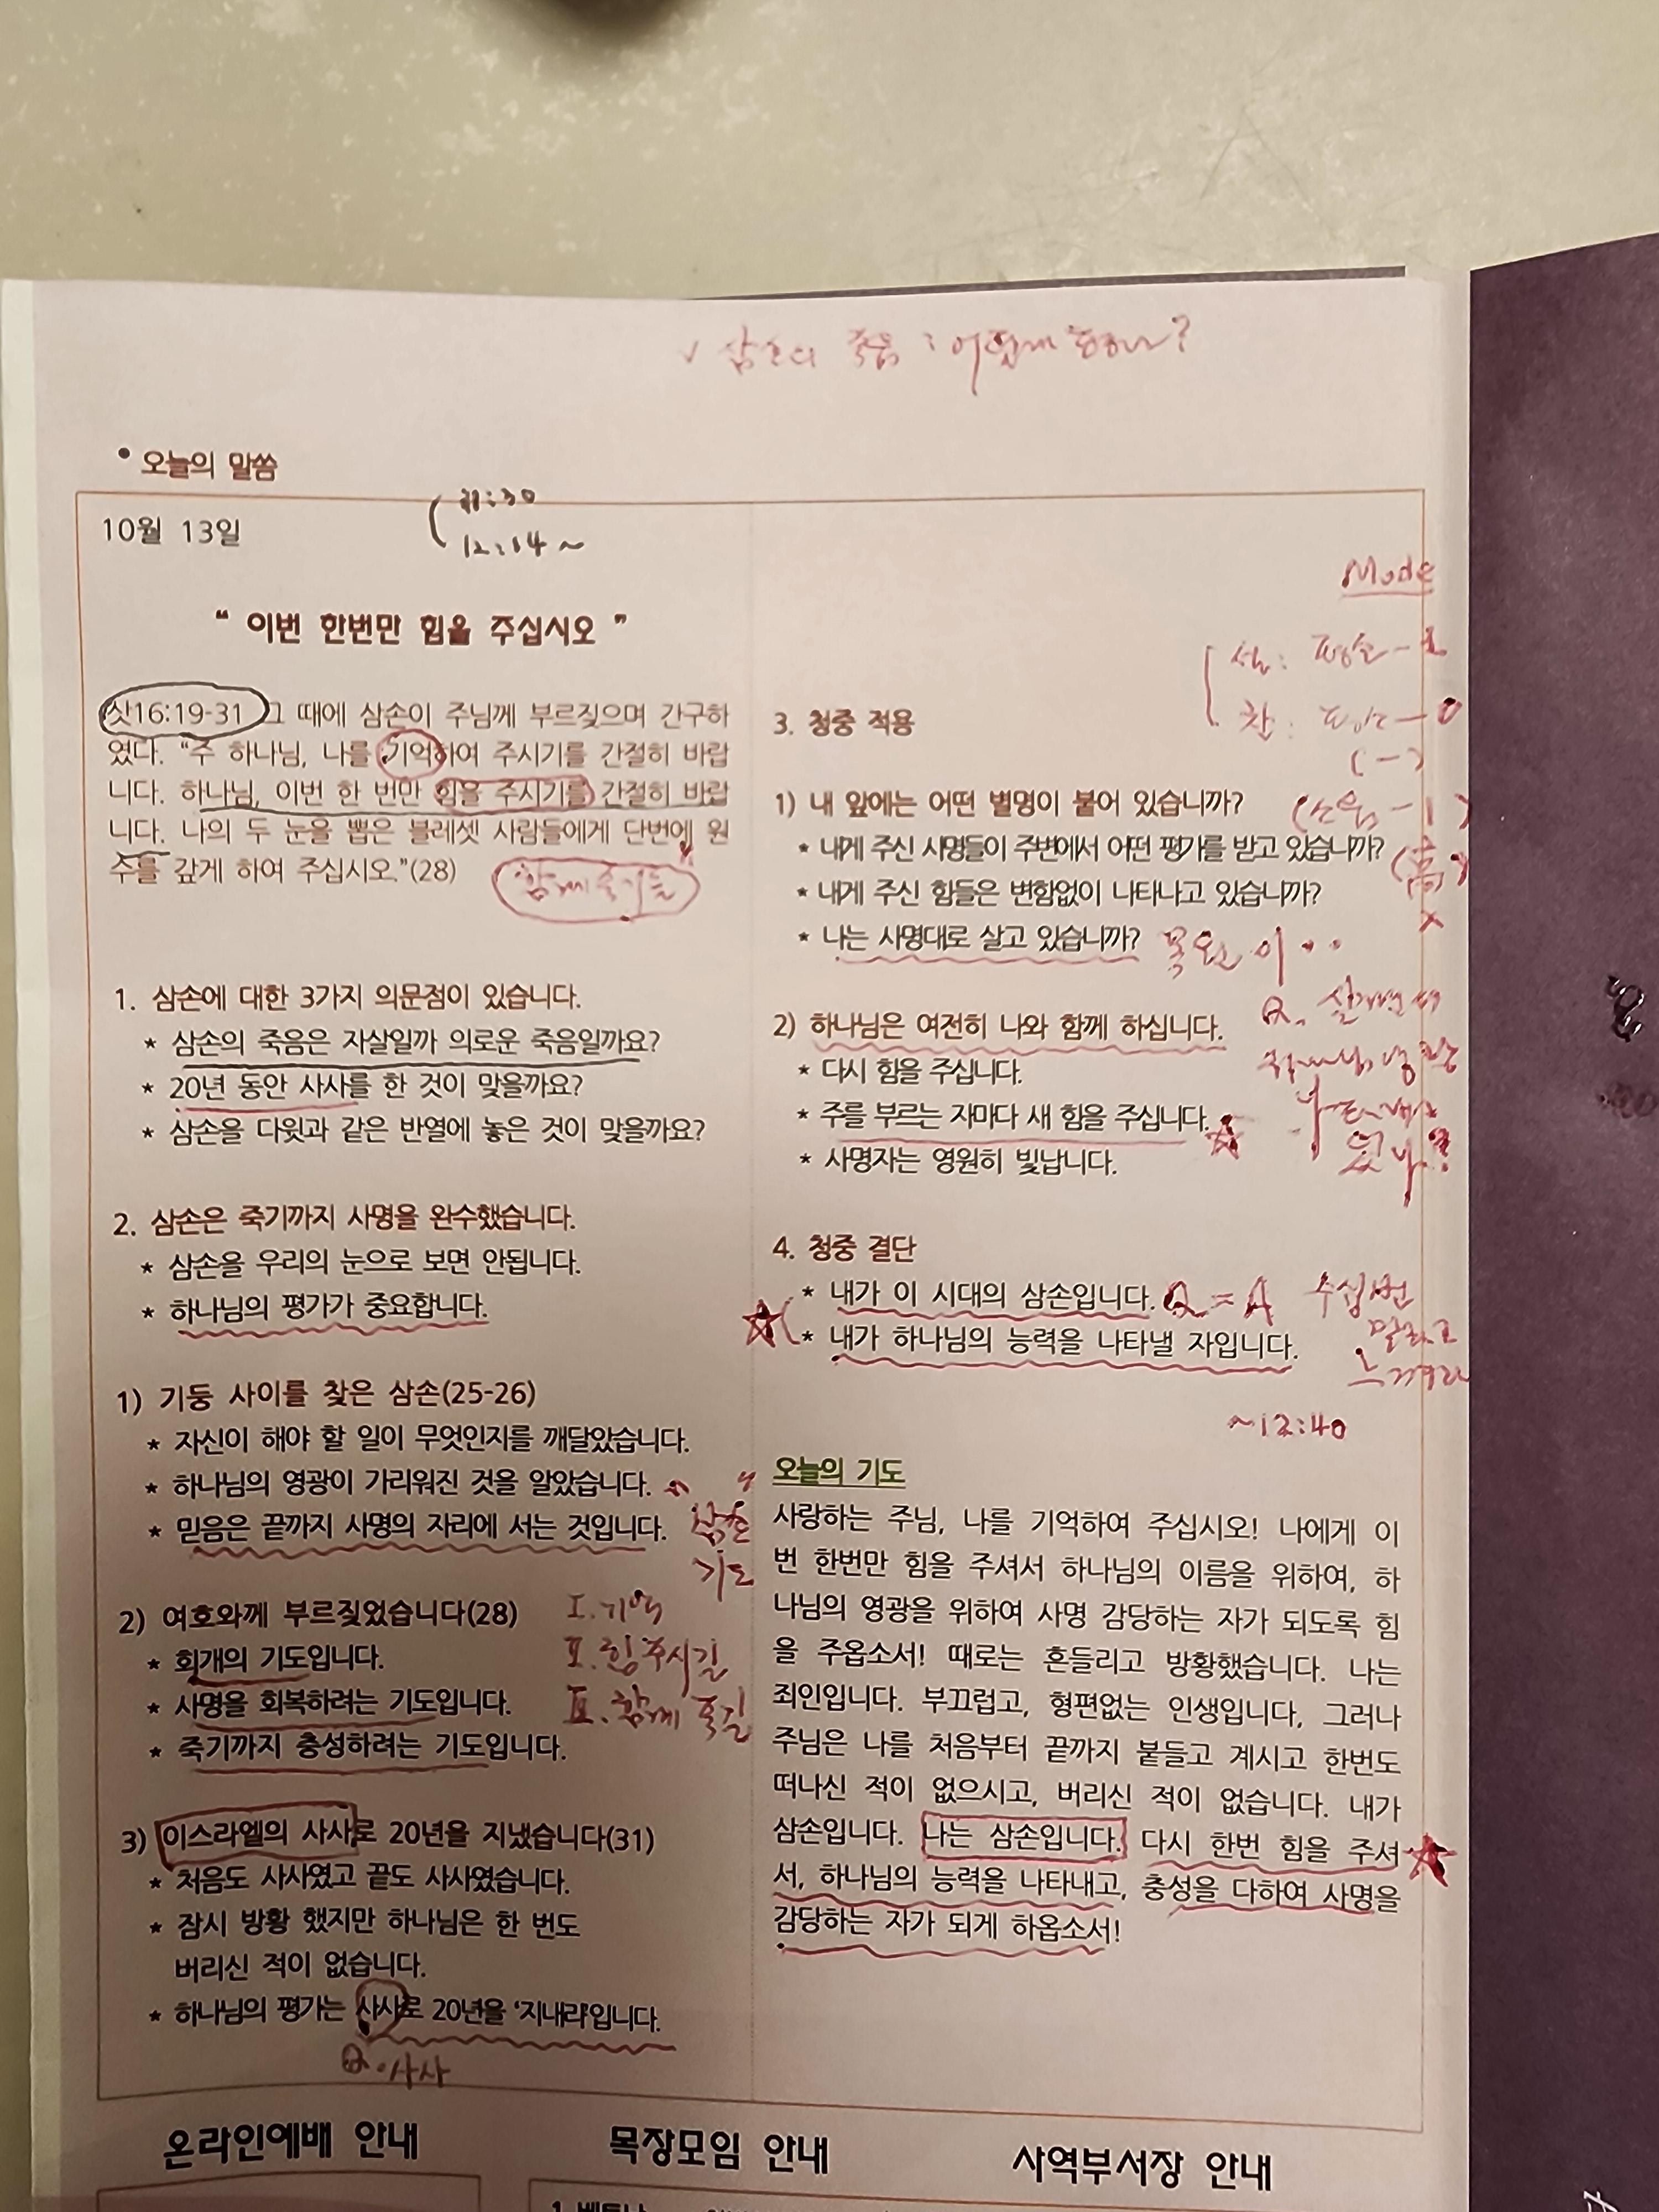 ✓ 삼손의 죽음 :
• 오늘의 말씀
10월 13일
11:30
12:14 ~
“ 이번 한번만 힘을 주십시오 ”
삿16:19-31 그 때에 삼손이 주님께 부르짖으며 간구하
였다. “주 하나님, 나를 기억하여 주시기를 간절히 바랍
니다. 하나님, 이번 한 번만 힘을 주시기를 간절히 바랍
니다. 나의 두 눈을 뽑은 블레셋 사람들에게 단번에 원
수를 갚게 하여 주십시오.”(28)
함께 죽기를
1. 삼손에 대한 3가지 의문점이 있습니다.
* 삼손의 죽음은 자살일까 의로운 죽음일까요?
* 20년 동안 사사를 한 것이 맞을까요?
* 삼손을 다윗과 같은 반열에 놓은 것이 맞을까요?
2. 삼손은 죽기까지 사명을 완수했습니다.
* 삼손을 우리의 눈으로 보면 안됩니다.
* 하나님의 평가가 중요합니다.
1) 기둥 사이를 찾은 삼손(25-26)
* 자신이 해야 할 일이 무엇인지를 깨달았습니다.
* 하나님의 영광이 가리워진 것을 알았습니다.
* 믿음은 끝까지 사명의 자리에 서는 것입니다.
삼손
기도
2) 여호와께 부르짖었습니다(28)
I. 기억
* 회개의 기도입니다.
II. 힘 주시길
* 사명을 회복하려는 기도입니다.
III. 함께 죽길
* 죽기까지 충성하려는 기도입니다.
3) 이스라엘의 사사로 20년을 지냈습니다(31)
* 처음도 사사였고 끝도 사사였습니다.
* 잠시 방황 했지만 하나님은 한 번도
버리신 적이 없습니다.
* 하나님의 평가는 사사로 20년을 ‘지내라’입니다.
Q. 사사
Mode
3. 청중 적용
1) 내 앞에는 어떤 별명이 붙어 있습니까?
* 내게 주신 사명들이 주변에서 어떤 평가를 받고 있습니까?
(高)
* 내게 주신 힘들은 변함없이 나타나고 있습니까?
* 나는 사명대로 살고 있습니까?
2) 하나님은 여전히 나와 함께 하십니다.
* 다시 힘을 주십니다.
* 주를 부르는 자마다 새 힘을 주십니다.
* 사명자는 영원히 빛납니다.
4. 청중 결단
* 내가 이 시대의 삼손입니다. Q = A 수십번
말하고
* 내가 하나님의 능력을 나타낼 자입니다.
느껴라
~12:40
오늘의 기도
사랑하는 주님, 나를 기억하여 주십시오! 나에게 이
번 한번만 힘을 주셔서 하나님의 이름을 위하여, 하
나님의 영광을 위하여 사명 감당하는 자가 되도록 힘
을 주옵소서! 때로는 흔들리고 방황했습니다. 나는
죄인입니다. 부끄럽고, 형편없는 인생입니다, 그러나
주님은 나를 처음부터 끝까지 붙들고 계시고 한번도
떠나신 적이 없으시고, 버리신 적이 없습니다. 내가
삼손입니다. 나는 삼손입니다. 다시 한번 힘을 주셔
서, 하나님의 능력을 나타내고, 충성을 다하여 사명을
감당하는 자가 되게 하옵소서!
온라인예배 안내
목장모임 안내
사역부서장 안내